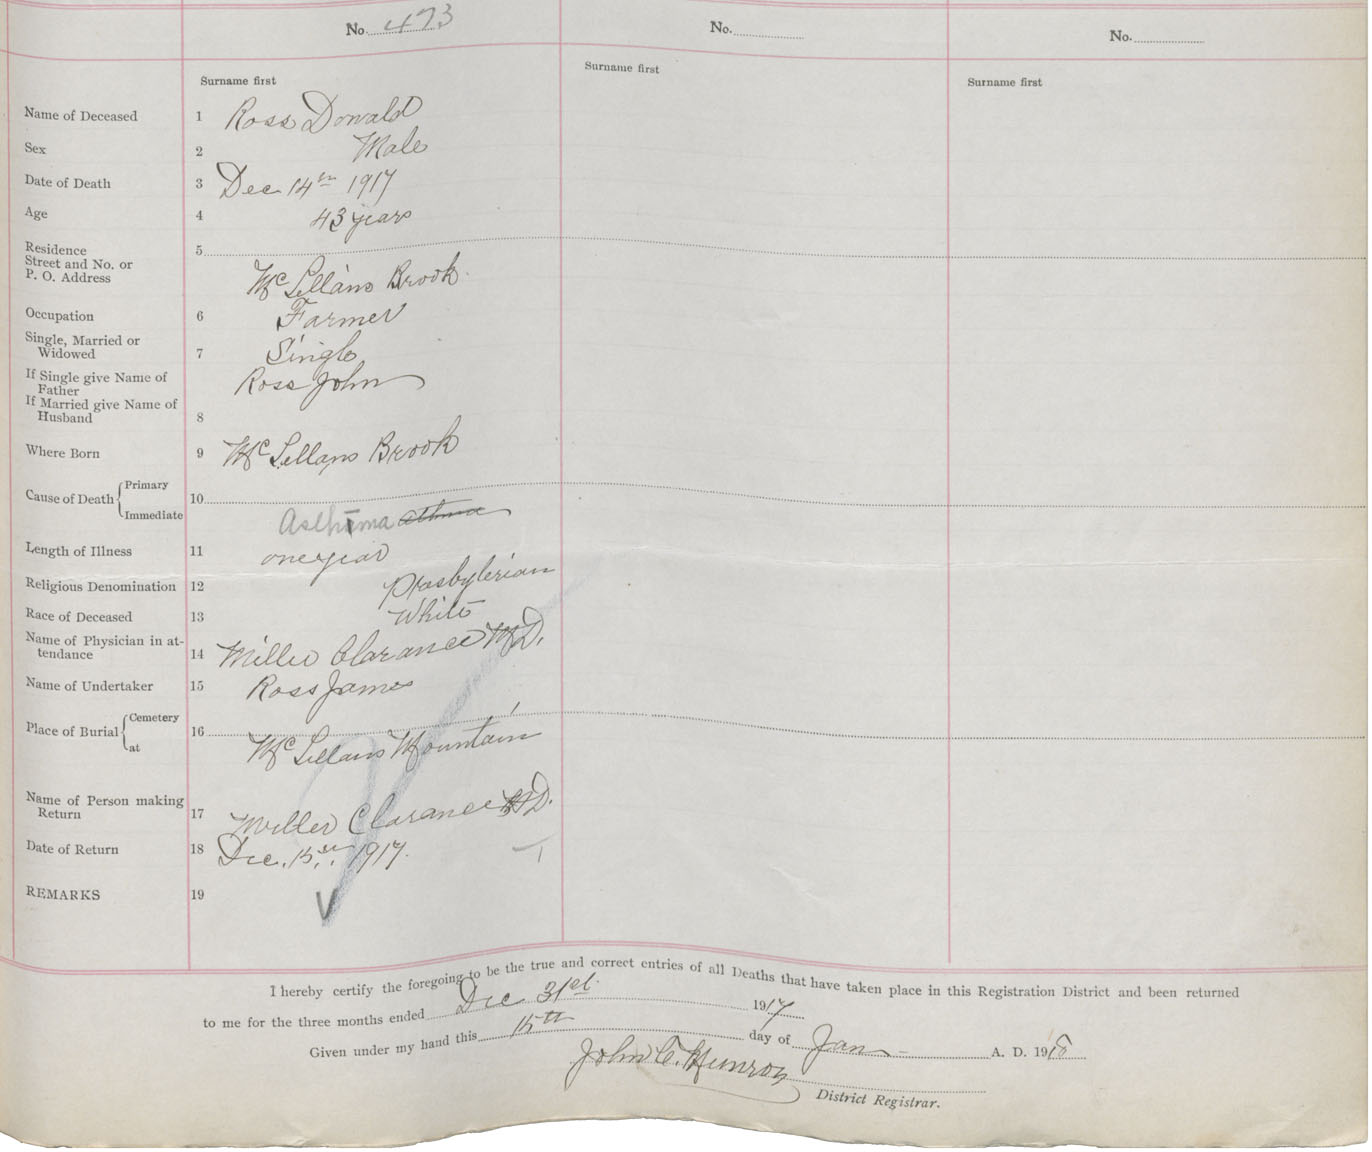 No. 473
No.
No.
Surname first
Surname first
Surname first
Name of Deceased 1 Ross Donald
Sex 2 Male
Date of Death 3 Dec 14th 1917
Age 4 43 years
Residence 5
Street and No. or
P. O. Address McLellans Brook
Occupation 6 Farmer
Single, Married or
Widowed 7 Single
If Single give Name of
Father Ross John
If Married give Name of
Husband 8
Where Born 9 McLellans Brook
Cause of Death Primary 10
Immediate Asthma athma
Length of Illness 11 one year
Religious Denomination 12 Presbyterian
Race of Deceased 13 White
Name of Physician in at-
tendance 14 Miller Clarance M.D.
Name of Undertaker 15 Ross James
Place of Burial Cemetery 16
at McLellans Mountain
Name of Person making
Return 17 Miller Clarance M.D.
Date of Return 18 Dec. 15th, 1917.
REMARKS 19
I hereby certify the foregoing to be the true and correct entries of all Deaths that have taken place in this Registration District and been returned
to me for the three months ended Dec 31st 1917
Given under my hand this 15th day of Jan A. D. 1918
John C. Munroe
District Registrar.